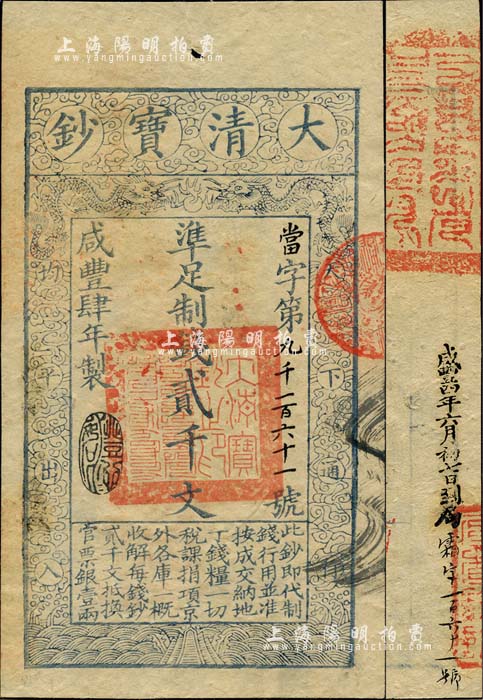 上海陽明拍賣
www.yangmingauction.com
大清寶鈔
當字第九千一百六十一號
準足制錢貳千文
咸豐肆年製
天下通行
均平出入
此鈔即代制
錢行用並准
按成交納地
丁錢糧一切
稅課捐項京
外各庫一概
收解每錢鈔
貳千文抵換
官票銀壹兩
上海陽明拍賣
www.yangmingauction.com
上海陽明拍賣
www.yangmingauction.com
年六月初七日到局
霜字一百六十一號